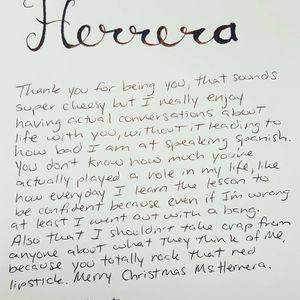 Herrera
Thank you for being you, that sounds
super cheesy but I really enjoy
having actual conversations about
life with you, without it leading to
how bad I am at speaking Spanish.
You don't know how much you've
actually played a role in my life, like
how everyday I learn the lesson to
be confident because even if I'm wrong
at least I went out with a bang.
Also that I shouldn't take crap from
anyone about what they think of me,
because you totally rock that red
lipstick. Merry Christmas Ms. Herrera.